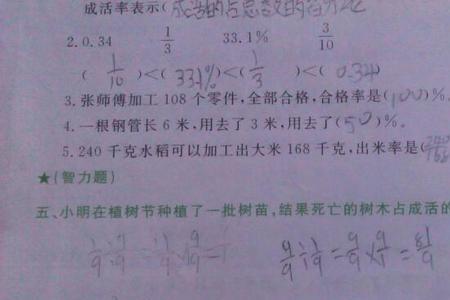 成活率表示(成活的占总数的百分之
2. 0.34 1/3 33.1% 3/10
( 1/10 )<( 33.1% )<( 1/3 )<( 0.34 )
3. 张师傅加工 108 个零件,全部合格,合格率是(100)%。
4. 一根钢管长 6 米,用去了 3 米,用去了(50)%。
5. 240 千克水稻可以加工出大米 168 千克,出米率是(
★(智力题)
五、小明在植树节种植了一批树苗,结果死亡的树木占成活的